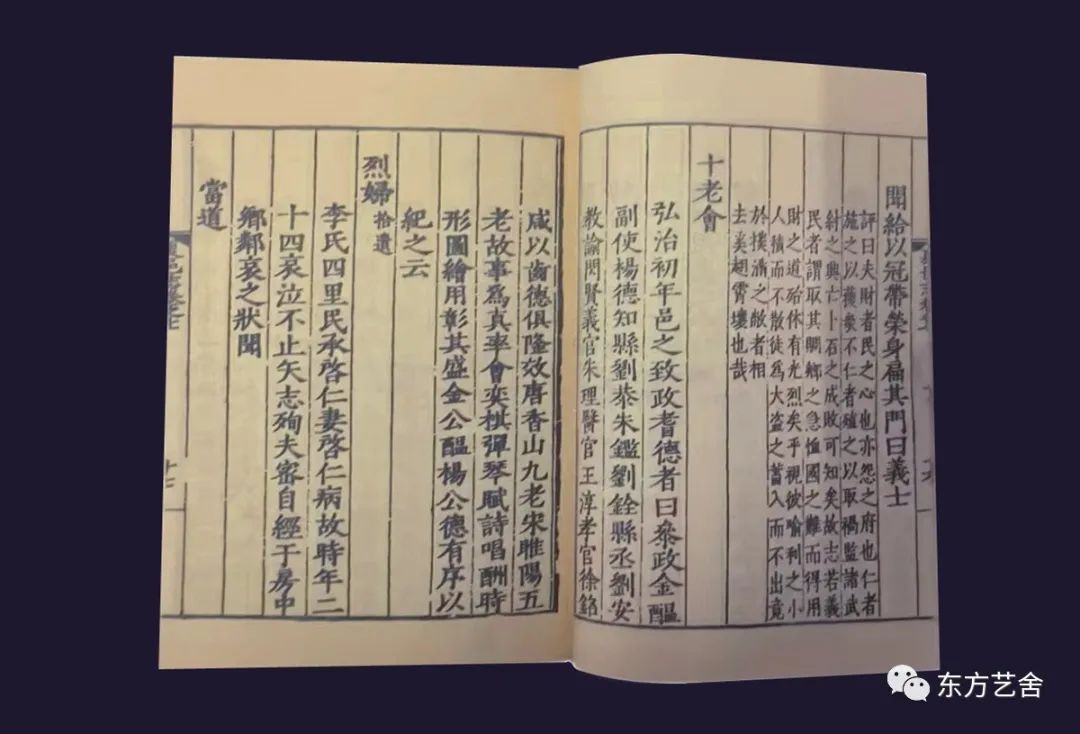 聞給以冠帶榮身扁其門曰義士
評曰夫財者民之心也亦怨之府也仁者
施之以獲衆不仁者殖之以取禍監諸武
紂之興亡卜石之成敗可知矣故志若義
民者謂取其賙鄉之急恤國之難而得用
財之道殆休有光烈矣乎視彼喻利之小
人積而不散徒爲大盗之蓄入而不出竟
於撲滿之敵者相
去奚趐霄壤也哉
十老會
弘治初年邑之致政耆德者曰叅政金醖
副使楊德知縣劉㤗朱鑑劉銓縣丞劉安
教諭閃賢義官朱理醫官王淳孝官徐銘
咸以齒德俱隆效唐香山九老宋睢陽五
老故事爲真率會奕棋彈琴賦詩唱酬時
形圖繪用彰其盛金公醖楊公德有序以
紀之云
烈婦拾遺
李氏四里民承啓仁妻啓仁病故時年二
十四哀泣不止矢志殉夫密自經于房中
鄉鄰哀之狀聞
當道
东方艺舍